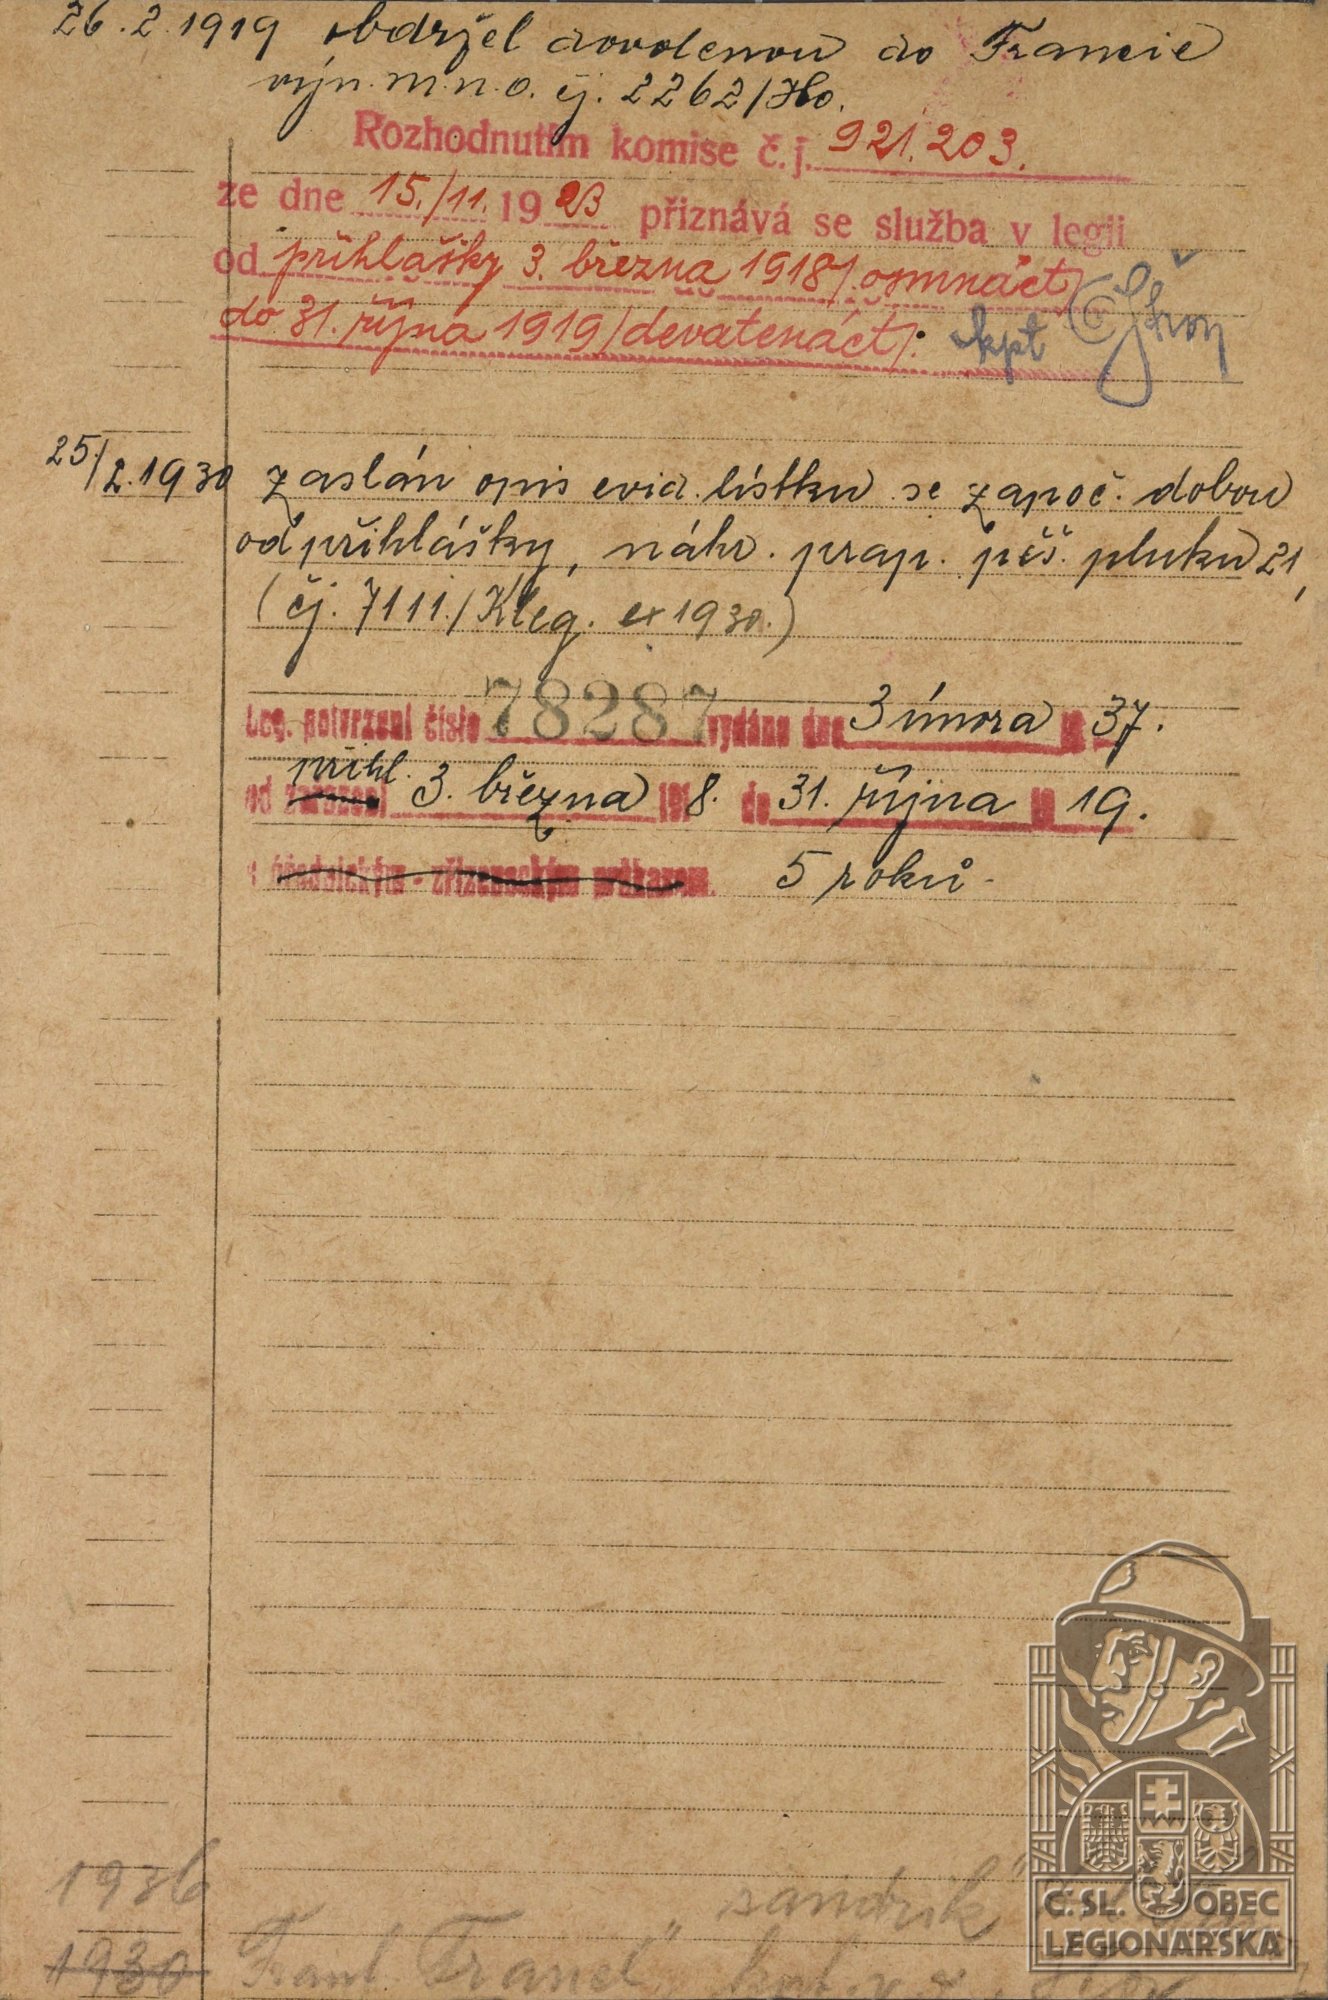 26.2.1919 obdržel dovolenou do Francie
výn. m.n.o. čj. 2262/Ho.
Rozhodnutím komise č.j. 921.203.
ze dne 15./11. 1923 přiznává se služba v legii
od přihlášky 3. března 1918/.osmnáct/
do 31. října 1919/devatenáct/. kpt
25./2.1930 zaslán opis evid. lístku se započ. dobou
od přihlášky, náhr. prap. pěš. pluku 21,
(čj. 7111./Kleg. ex 1930.)
Leg. potvrzení číslo 78287 vydáno dne 3 února 19 37.
přihl.
od zařazení 3. března 1918. do 31. října 19 19.
s úřednickým - zřízeneckým průkazem. 5 roků -
1936 sandrik"
1930 Frant. Francl"
Č. SL. OBEC
LEGIONÁŘSKÁ